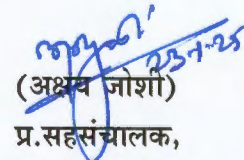 23-1-25
(अक्षय जोशी)
प्र.सहसंचालक,